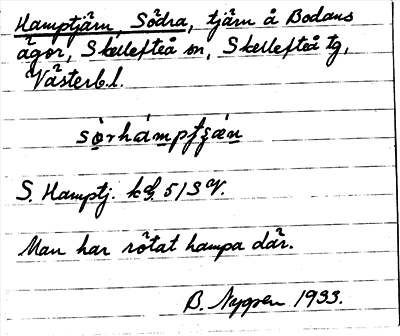 Hamptjärn, Södra, tjärn å Bodans
ägor, Skellefteå sn, Skellefteå tg,
Västerb.l.
S. Hamptj. 51SV.
Man har rötat hampa där.
B. Nygren 1933.